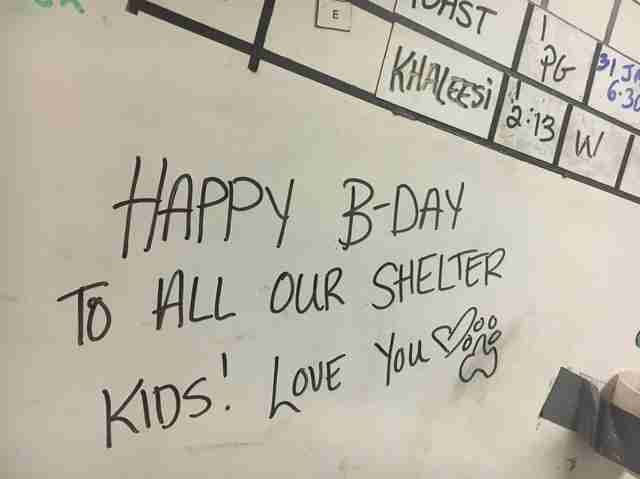 E
PG
31
KHALEESi
2:13
W
HAPPY B-DAY
TO ALL OUR SHELTER
KIDS! LOVE YOU